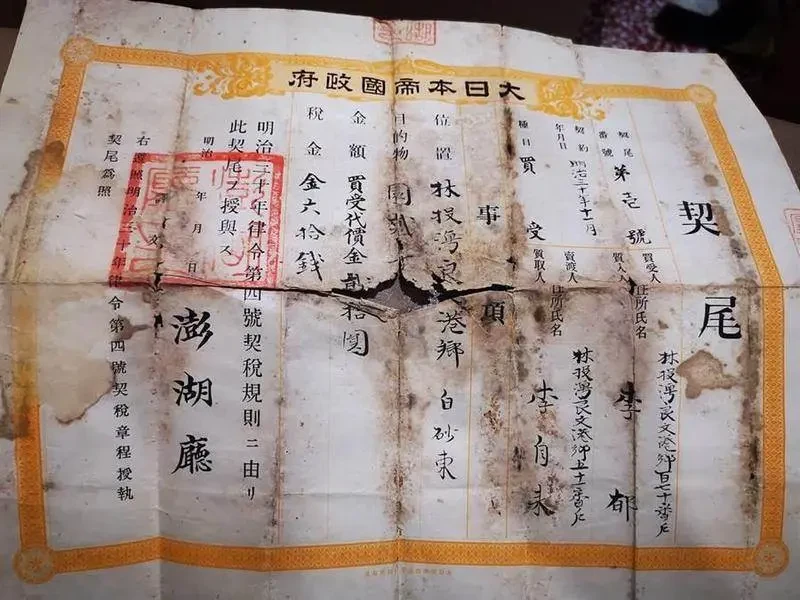 大日本帝國政府
契尾
契尾番號 第壱號
契約年月日 明治三十年十一月
種目 買受
買受人
質入人
住所氏名
林投灣良文港鄉百七十番戶
李郁
賣渡人
質取人
住所氏名
林投灣良文港鄉五十一番戶
李自來
事項
位置 林投灣良 港鄉 白砂東
目的物 園
金額 買受代價金貳拾圓
税金 金六拾錢
明治三十年律令第四號契稅規則ニ由リ
此契尾ヲ授與ス
明治 年 月 日
澎湖廳
右遵照明治三十年律令第四號契稅章程授執
契尾爲照